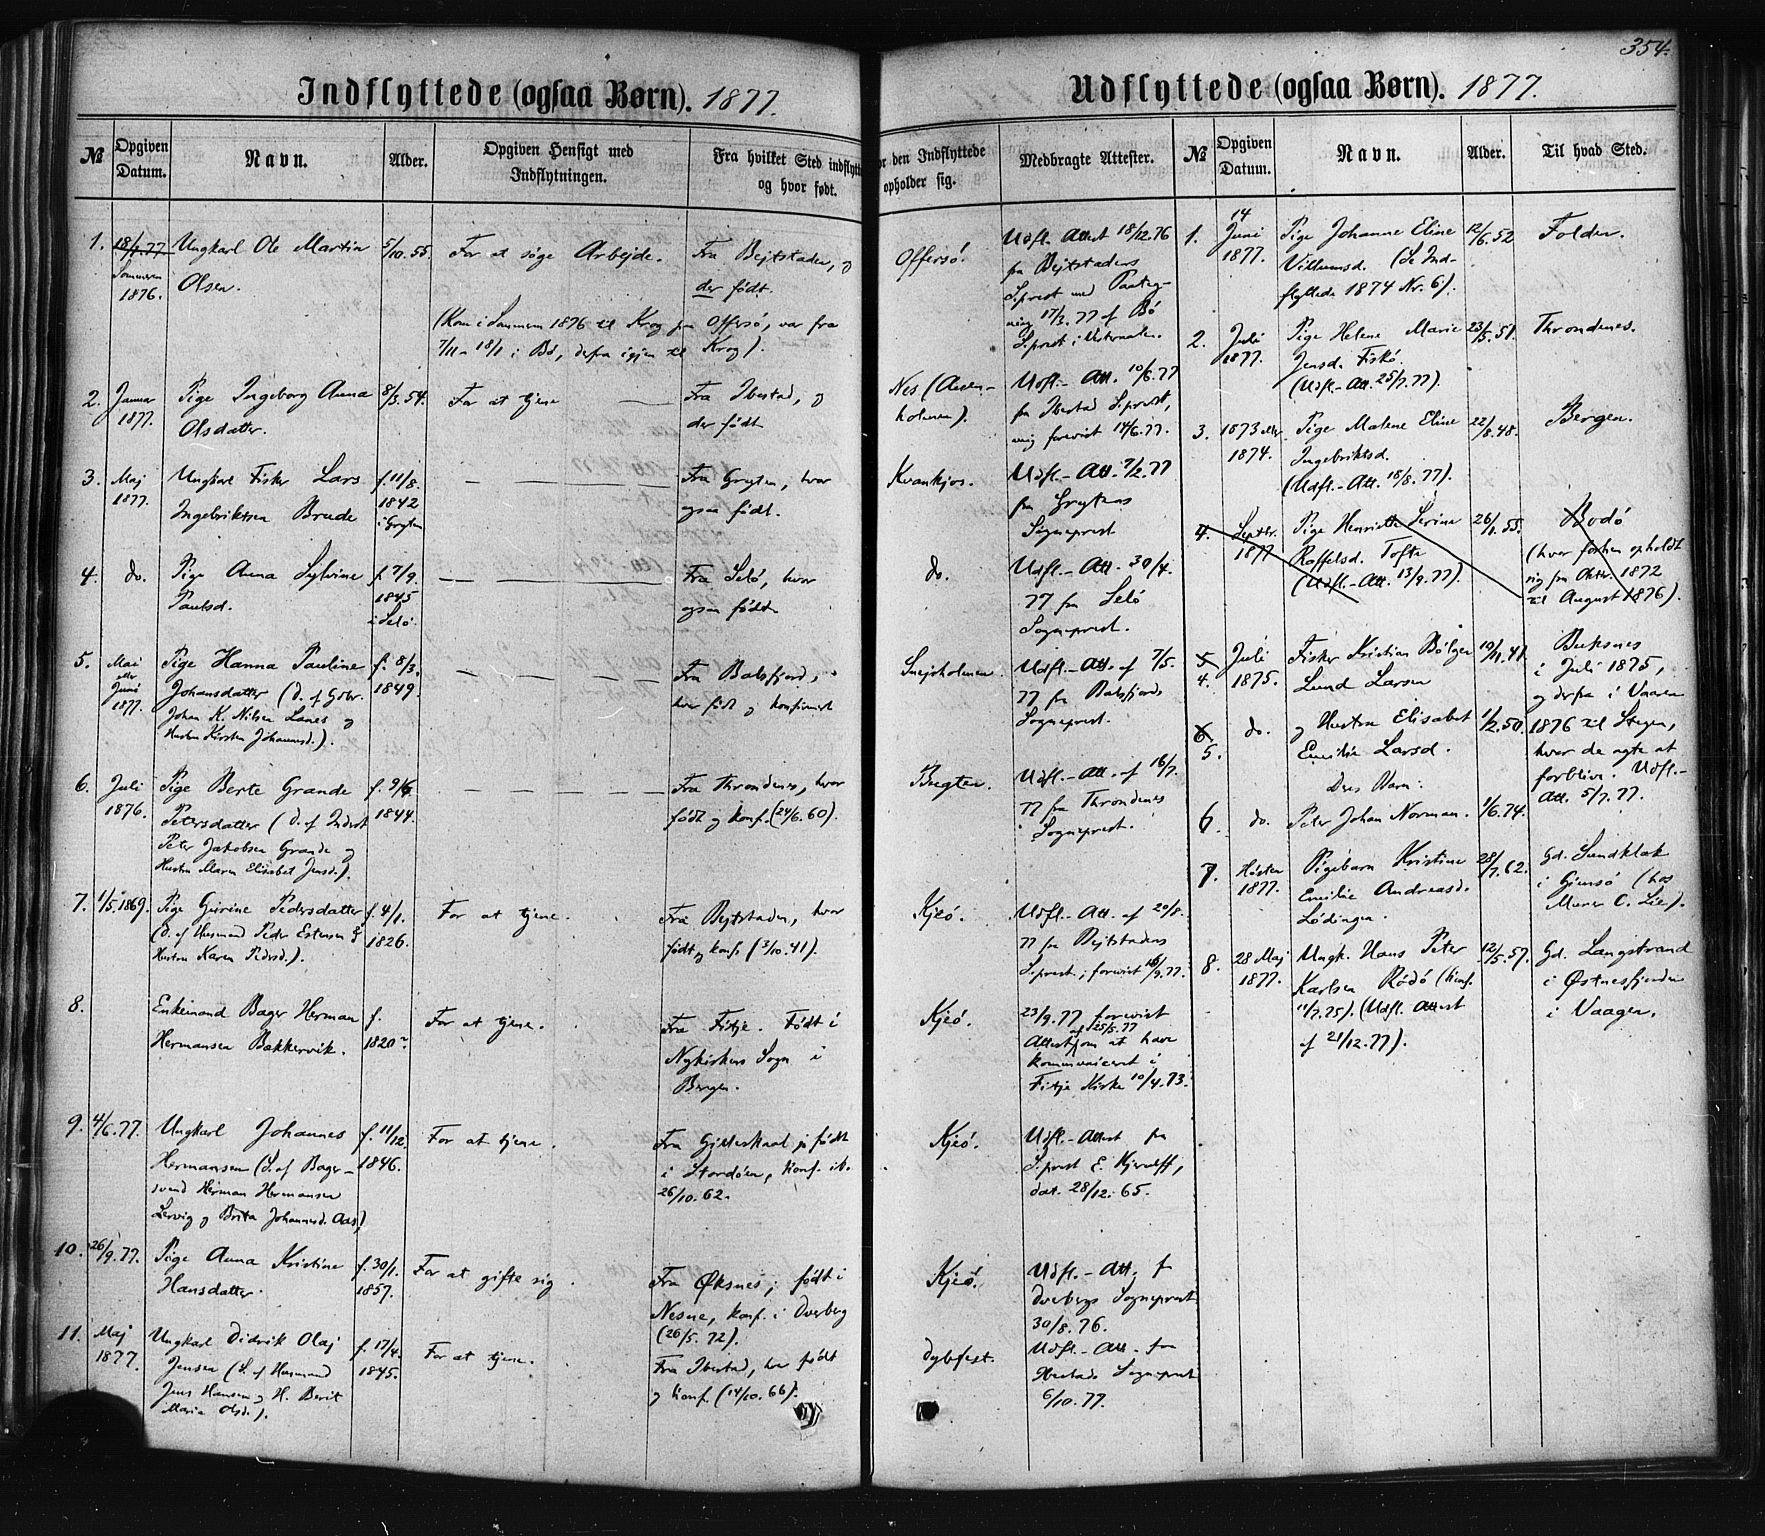 354.
Indflyttede (ogsaa Børn). 1877.
№
Opgiven Datum.
Navn.
Alder.
Opgiven Hensigt med Indflytningen.
Fra hvilket Sted indflytt
og hvor født.
or den Indflyttede
opholder sig.
Medbragte Attester.
1. 18/1.77 Sommeren 1876. Ungkarl Ole Martin Olsen. 5/10.55. For at søge Arbejde. Fra Bejtstaden, og der født. Offersó. Udfl. Attest 18/12.76 fra Bejtstadens S.prest med Paategning 17/3.77 af Bó S.prest i Vesteraalen.
(Kom i Sommeren 1876 til Krog paa Offersó, var fra 7/11 - 18/1 i Bó, derfra igjen til Krog).
2. Januar 1877. Pige Ingeborg Anna Olsdatter. 8/3.54. For at tjene Fra Ibestad, og der født Nes ( Udfl.-Att. 10/6.77 fra Ibestad S.prest, mig forevist 14/6.77.
3. Maj 1877. Ungkarl Fisker Lars Ingebriktsen Brude f. 11/8. 1842 i Gryten Fra Gryten, hvor ogsaa født. Kvankjos. Udfl.-Att. 7/2.77 fra Grytens Sogneprest
4. do. Pige Anna Sylvine Paulsd. f. 7/9. 1845 i Seló. Fra Seló, hvor ogsaa født. do. Udfl.-Att. 30/4. 77 fra Seló Sogneprest.
5. Mai eller Juni 1877. Pige Hanna Pauline Johansdatter (D. af Gbr. Johan K. Nilsen Lanes og Hustru Kirsten Johannesd.). f. 8/3. 1849. Fra Balsfjord, hvor født og konfirmeret Snejsholmen. Udfl.-Att. af 7/5. 77 fra Balsfjords Sogneprest.
6. Juli 1876. Pige Berte Grande Petersdatter (D. af Inderst Peter Jakobsen Grande og Hustru Maren Elisabet Jensd.). f. 9/6 1844. Fra Throndenes, hvor født og konf. (24/6.60). Bugten. Udfl.-Att. af 16/7. 77 fra Throndenes Sogneprest.
7. 1/5.1869. Pige Gurine Pedersdatter (D. af Husmand Peder Estensen og Hustru Karen Pedersd.). f. 4/1. 1826. For at tjene. Fra Bejtstaden, hvor født og konf. (3/10.41). Kjeó. Udfl.-Att. af 20/8. 77 fra Bejtstadens S.prest; forevist 16/9.77.
8. Enkemand Bager Herman Hermansen Bækkervik. f. 1820? For at tjene. Fra Fitje. Født i Nykirkens Sogn i Bergen. Kjeó. 23/9.77 forevist Attest af 25/5.77 om at have kommuniceret i Fitje Kirke 10/4.73.
9. 4/6.77. Ungkarl Johannes Hermansen (S. af Bagersvend Herman Hermansen Lervig og Brita Johannesd. Aas) f. 11/12. 1846. For at tjene. Fra Gildeskaal; født i Stordøen, konf. ib. 26/10.62. Kjeó. Udfl.-Attest fra S.prest E. Kjerulff, dat. 28/12.65.
10. 26/9.77. Pige Anna Kristine Hansdatter. f. 30/1. 1857. For at gifte sig. Fra Øksnes; født i Nesne, konf. i Dverberg (26/5.72). Kjeó. Udfl.-Att. f Dverbergs Sogneprest 30/8.76.
11. Maj 1877. Ungkarl Didrik Olaj Jensen (S. af Husmand Jens Hansen og H. Berit Maria Olsd.). f. 17/4. 1845. For at tjene. Fra Ibestad, hvor født og konf. (14/10.66). Dybfest. Udfl.-Att. fra Ibestads Sogneprest 6/10.77.
Udflyttede (ogsaa Børn). 1877.
№
Opgiven Datum.
Navn.
Alder.
Til hvad Sted.
1. 14 Juni 1877. Pige Johanne Eline Villumsd. (Se Indflyttede 1874 Nr. 6). 12/6.52 Folden.
2. Juli 1877. Pige Helene Marie Jensd. Fiskó. (Udfl.-Att. 25/7.77). 23/5.51. Throndenes.
3. 1873 eller 1874. Pige Malene Eline Ingebriktsd. (Udfl.-Att. 18/8.77). 22/8.48. Bergen.
4. Septbr. 1877 Pige Henriette Serine Roffelsd. Tofte (Udfl.-Att. 13/9.77). 26/1.55. Bodó (hvor forhen opholdt sig fra Oktbr. 1872 til August 1876).
5 4. Juli 1875. Fisker Kristian Bólgen Lund Larsen 10/11.41. Buksnes i Juli 1875, og derfra i Vaaren 1876 til Stegen, hvor de agte at forblive. Udfl.-Att. 5/7.77.
6 5. do. og Hustru Elisabet Emilie Larsd. 1/2.50.
Deres Barn:
6. do. Peter Johan Norman. 1/6.74.
7. Hósten 1877. Pigebarn Kristine Emilie Andreasd. Lódingen. 28/7.62. Gd. Sundklak i Gjimsó (hos Murer C. Lie).
8. 28 Maj 1877. Ungk. Hans Peter Karlsen Ródó (konf. 11/7.75). (Udfl. Attest af 21/12.77). 12/5.57. Gd. Langstrand i Østnesfjorden i Vaagen.